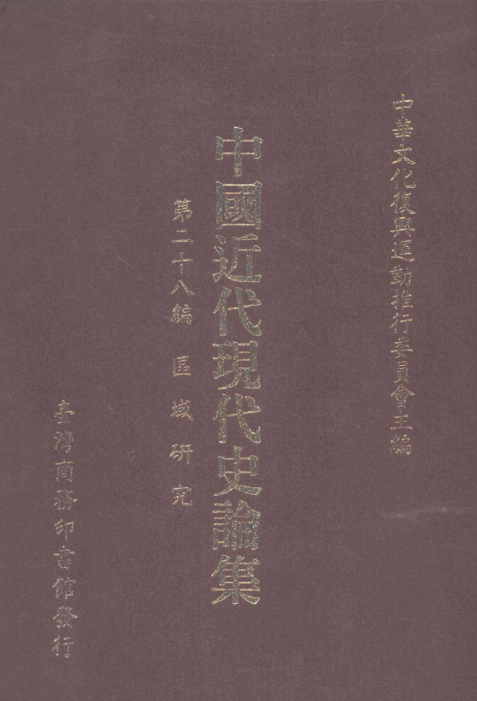 中華文化復興運動推行委員會主編
中國近代現代史論集
第二十八編 區域研究
臺灣商務印書館發行